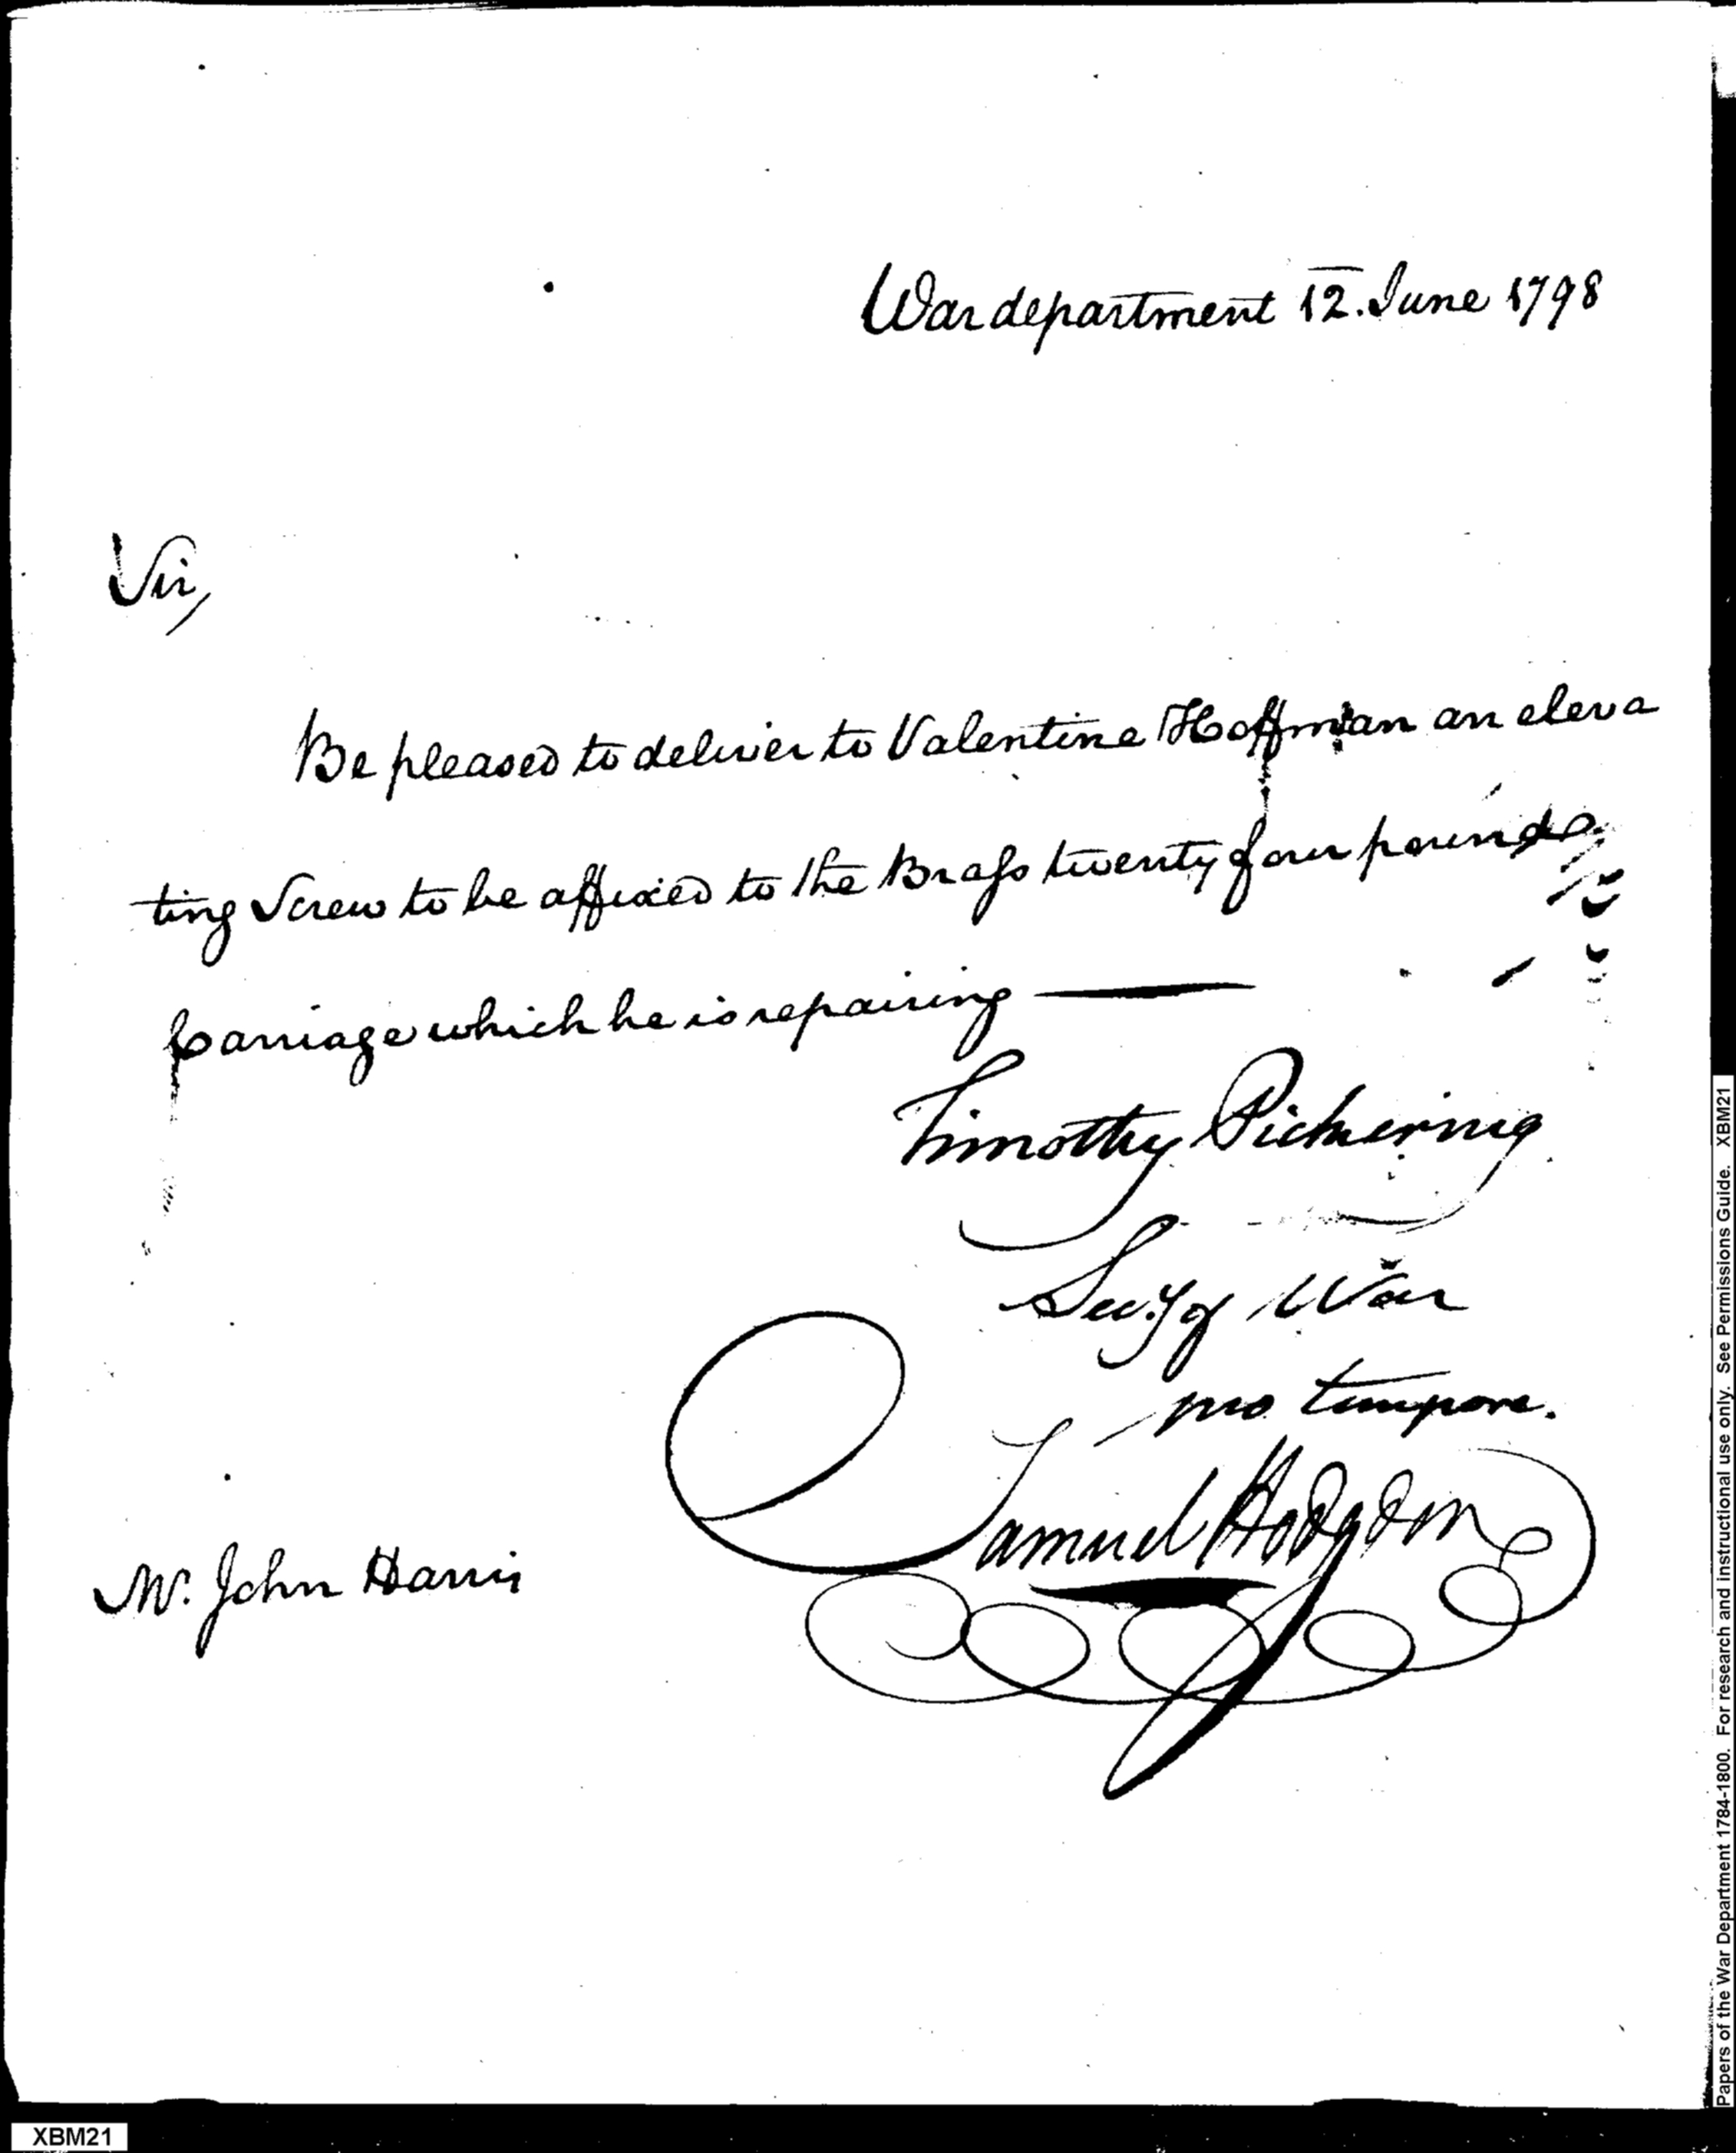 War department 12. June 1798
Sir,
Be pleased to deliver to Valentine Hoffman an eleva
ting Screw to be affixed to the Brass twenty four pounde
Carriage which he is repairing
Timothy Pickering
Secy of War
pro tempore.
Samuel Hodgdon
Mr. John Harris
Papers of the War Department 1784-1800. For research and instructional use only. See Permissions Guide. XBM21
XBM21